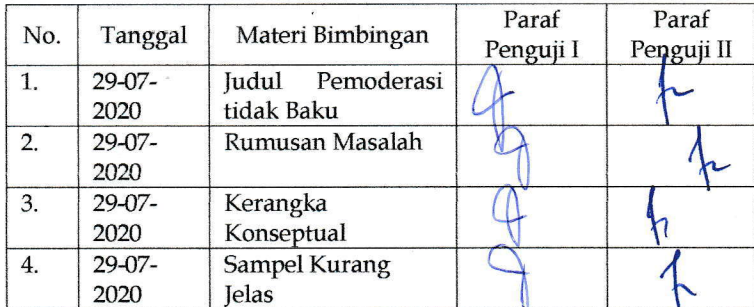 No. Tanggal Materi Bimbingan Paraf Penguji I Paraf Penguji II
1. 29-07-2020 Judul Pemoderasi tidak Baku
2. 29-07-2020 Rumusan Masalah
3. 29-07-2020 Kerangka Konseptual
4. 29-07-2020 Sampel Kurang Jelas